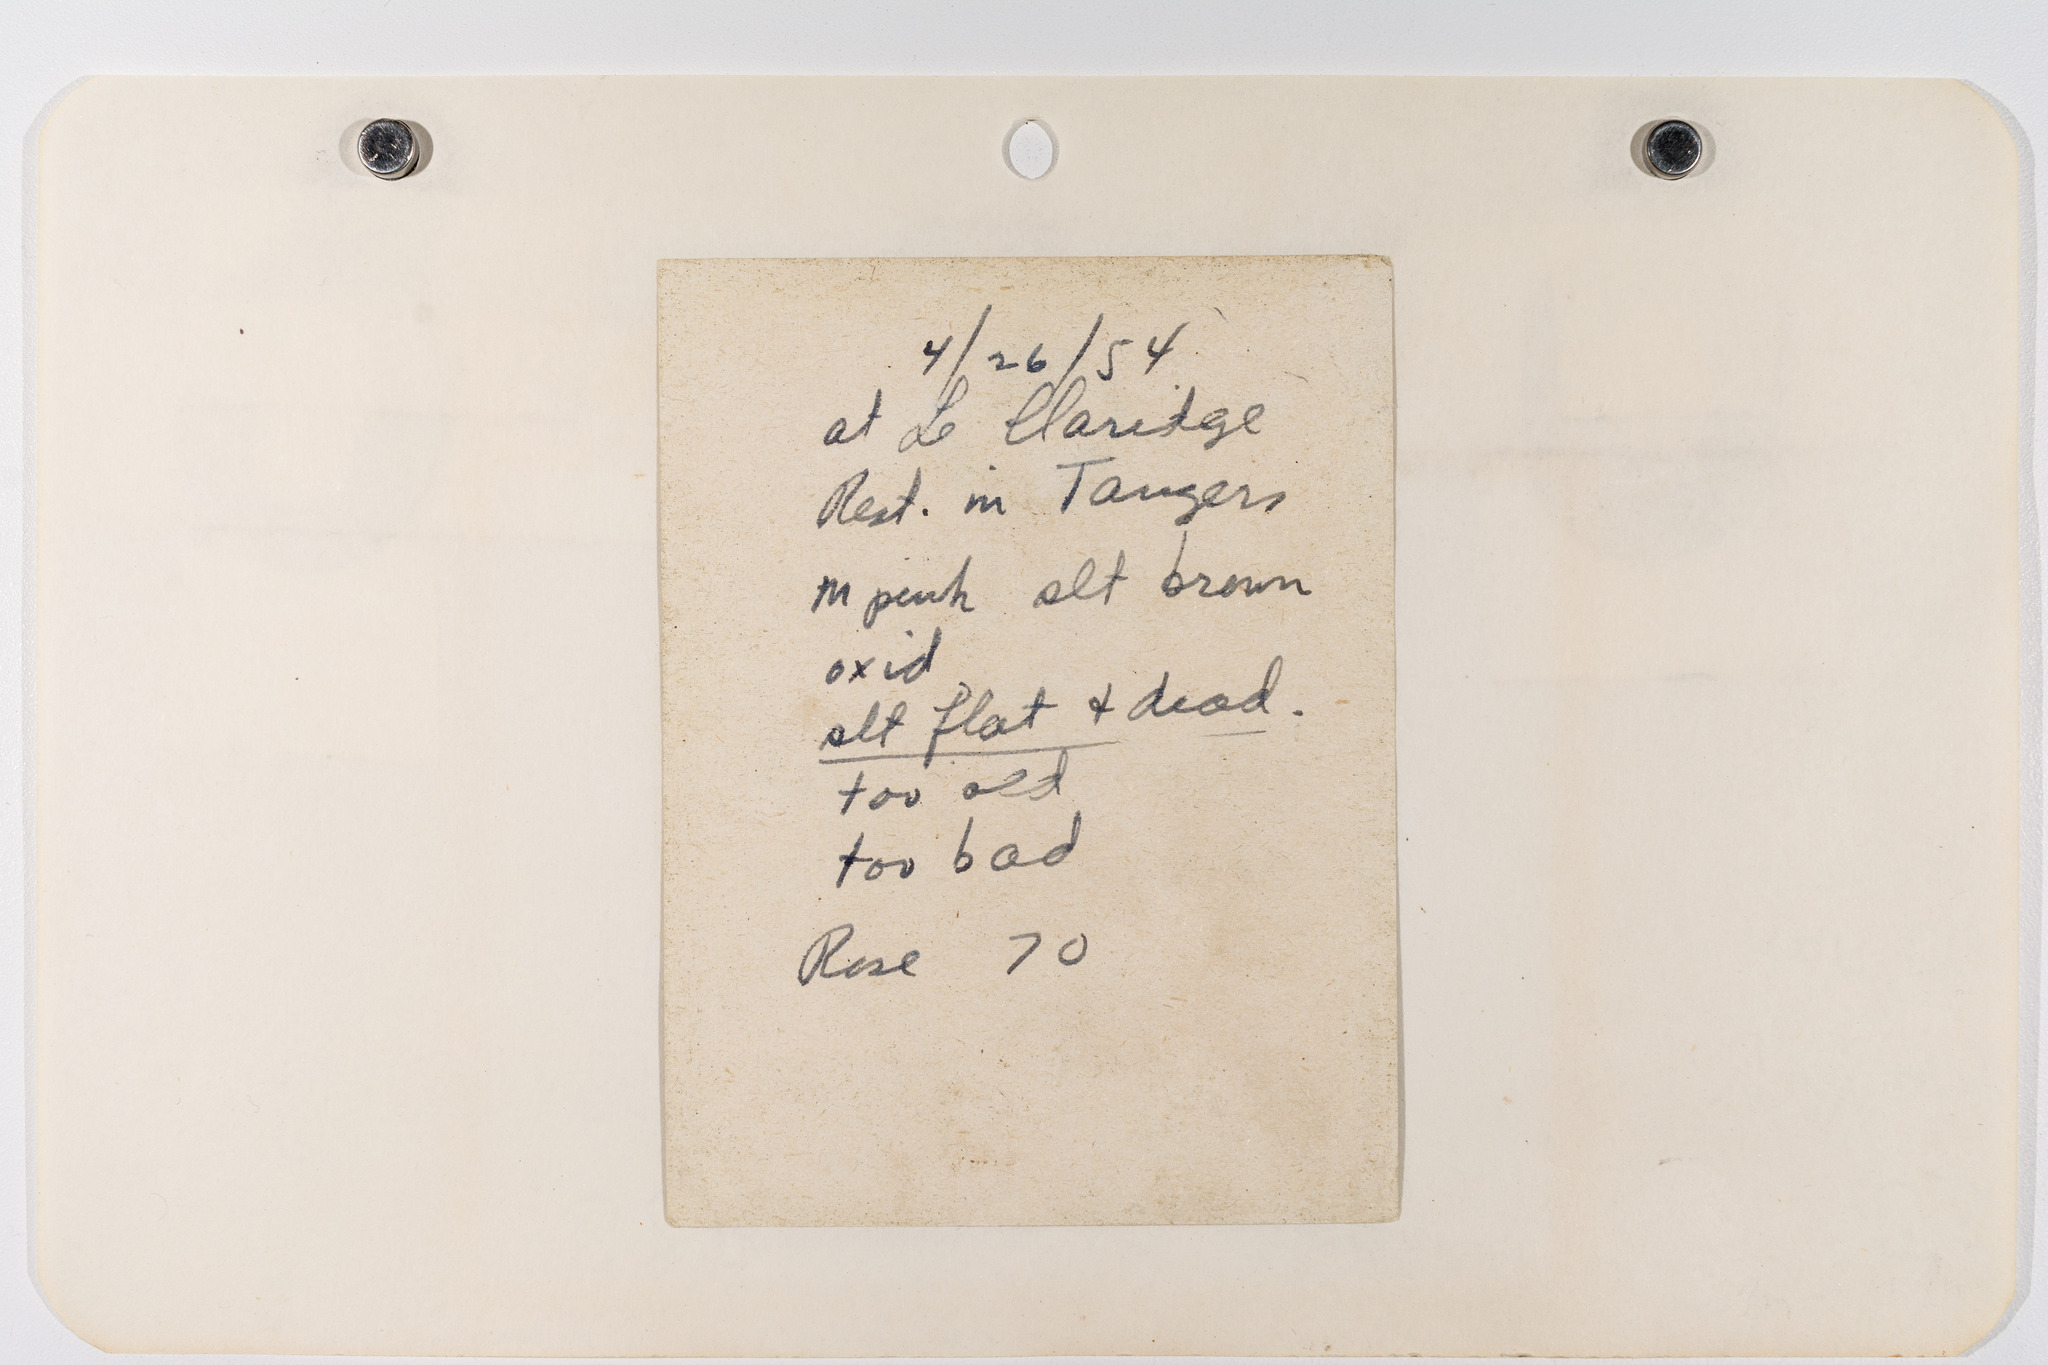 4/26/54
at Le Claridge
Rest. in Tangers
m pink slt brown
oxid
slt flat + dead.
too old
too bad
Rose 70